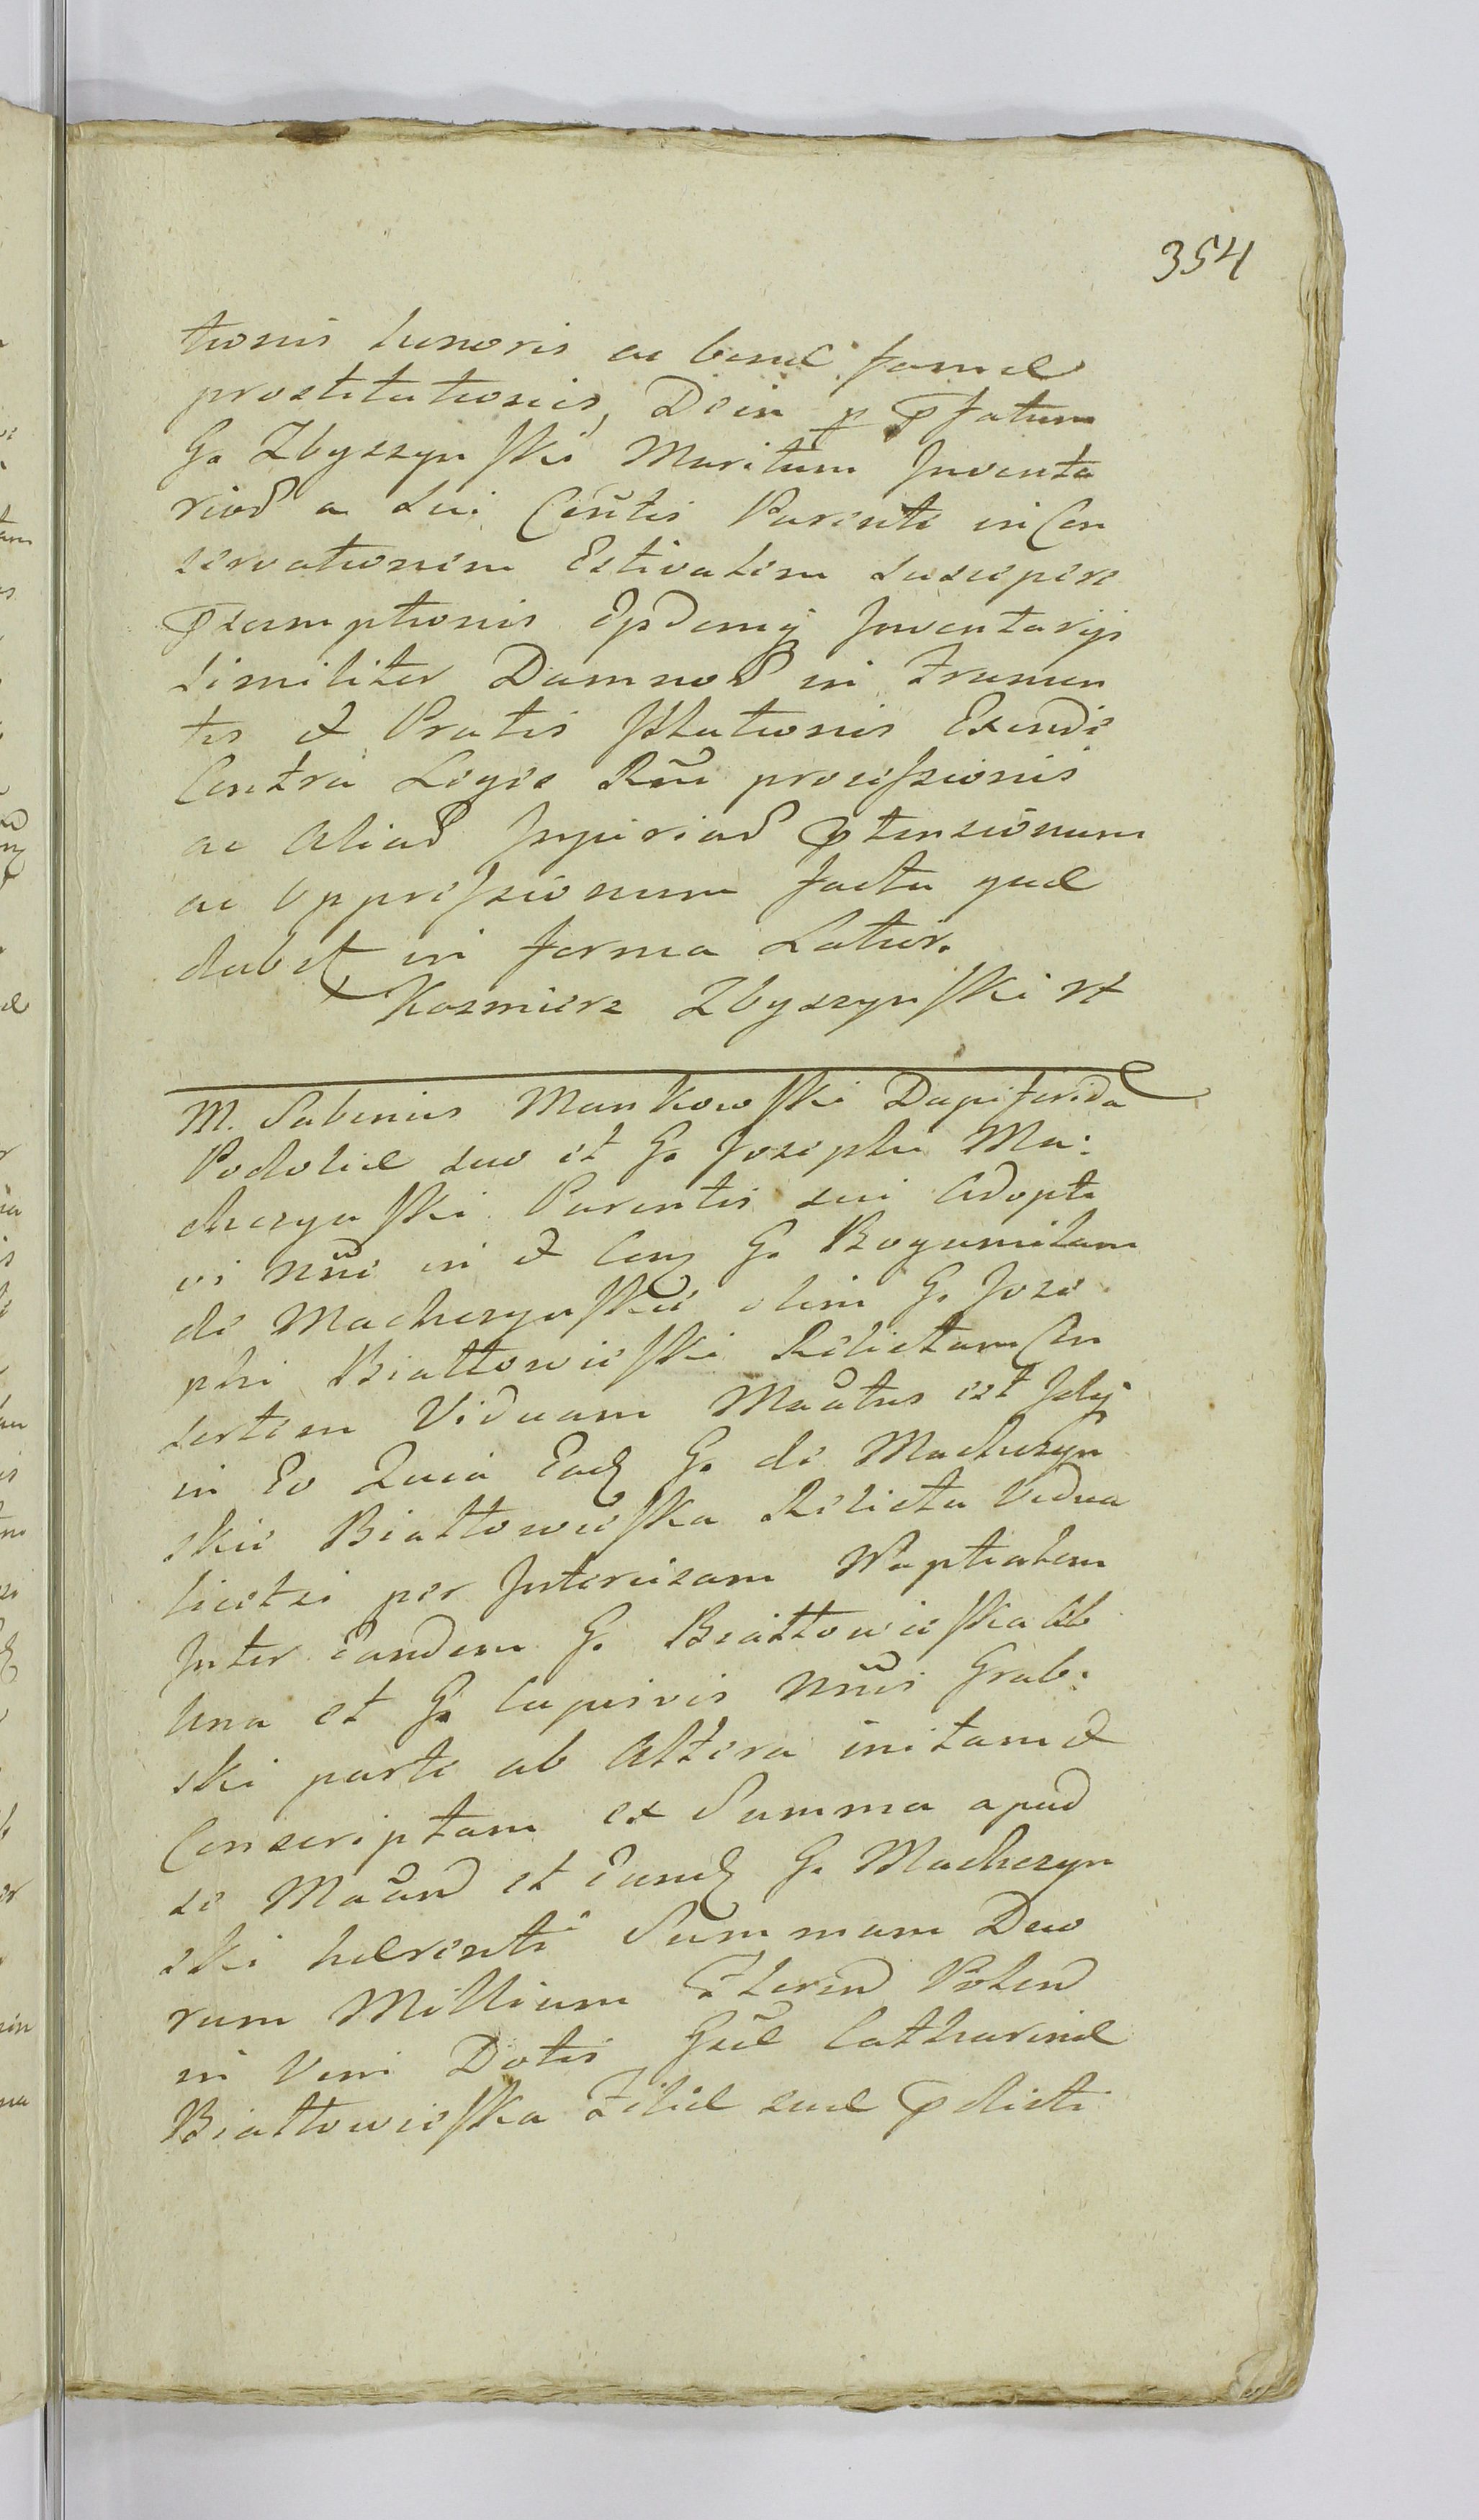 354
tionis honoris ac bonæ famæ
prostitutionis, Dein p præfatum
G. Zbyszyński Maritum Inventa
riorum a sui Cõntis Parente in Con
servationem Estivalem suscipere
præsumptionis Epdemq Inventarijs
similiter Damnorum in Frumen
tis et Pratis Pstationis Exinde
Contra Leges Rñi processionis
ac Aliarum Injuriarum prætensionum
ac Oppressionum facta quæ
dabit in forma Latior.
Kazmierz Zbyszyński
M. Sabinus Mankowski Dapiferida
Podoliæ suo et G. Josephi Ma:
cherzyński Parentis sui Adopti
vi nñe in et Conq G. Bogumilam
de Macherzyńskie olim G. Jose
phi Białłowieski Relictam Con
sortem Viduam Mãtus est Idq
in Eo Quia Eadq G. de Macherzyn
skie Białłowieska Relicta Vidua
licetsi per Intercizam Nuptialem
Inter Eandem G. Białłowieska ab
Una et G. Cujusvis Nñis Grab:
ski parte ab Altera initam et
Conscriptam ex Summa apud
se Mãnd et Eundq G. Macherzyn
ski hærenti Summam Duo
rum Millium Florend Polend
in Vim Dotis Gñæ Catharinæ
Białłowieska Filiæ suæ prædicti